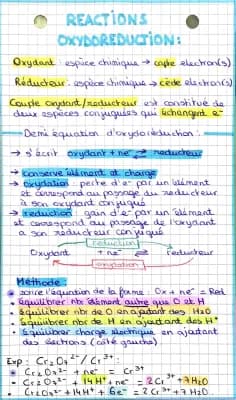 REACTIONS
OXYDOREDUCTION :
Oxydant : espèce chimique → capte electron(s)
Réducteur : espèce chimique → cède electron(s)
Couple oxydant/reducteur est constitué de
deux espèces conjuguées qui échangent e-
Demi équation d'oxydoréduction :
→ s'écrit oxydant + ne- ⇌ reducteur
→ conserve élément et charge
→ oxydation : perte d'e- par un élément
et correspond au passage du reducteur
à son oxydant conjugué
→ reduction : gain d'e- par un élément
et correspond au passage de l'oxydant
a son réducteur conjugué
reduction
Oxydant + ne- ⇌ reducteur
oxydation
Méthode :
• ecrire l'équation de la forme : Ox + ne- = Red
• équilibrer nbr élément autre que O et H
• équilibrer nbr de O en ajoutant des H2O
• équilibrer nbr de H en ajoutant des H+
• équilibrer charge electrique en ajoutant
des électrons (côté gauche)
Exp : Cr2O7 2-/ Cr3+ :
• Cr2O7 2- + ne- = Cr3+
• Cr2O7 2- + 14H+ + ne- = 2Cr3+ + 7H2O
• Cr2O7 2- + 14H+ + 6e- = 2Cr3+ + 7H2O